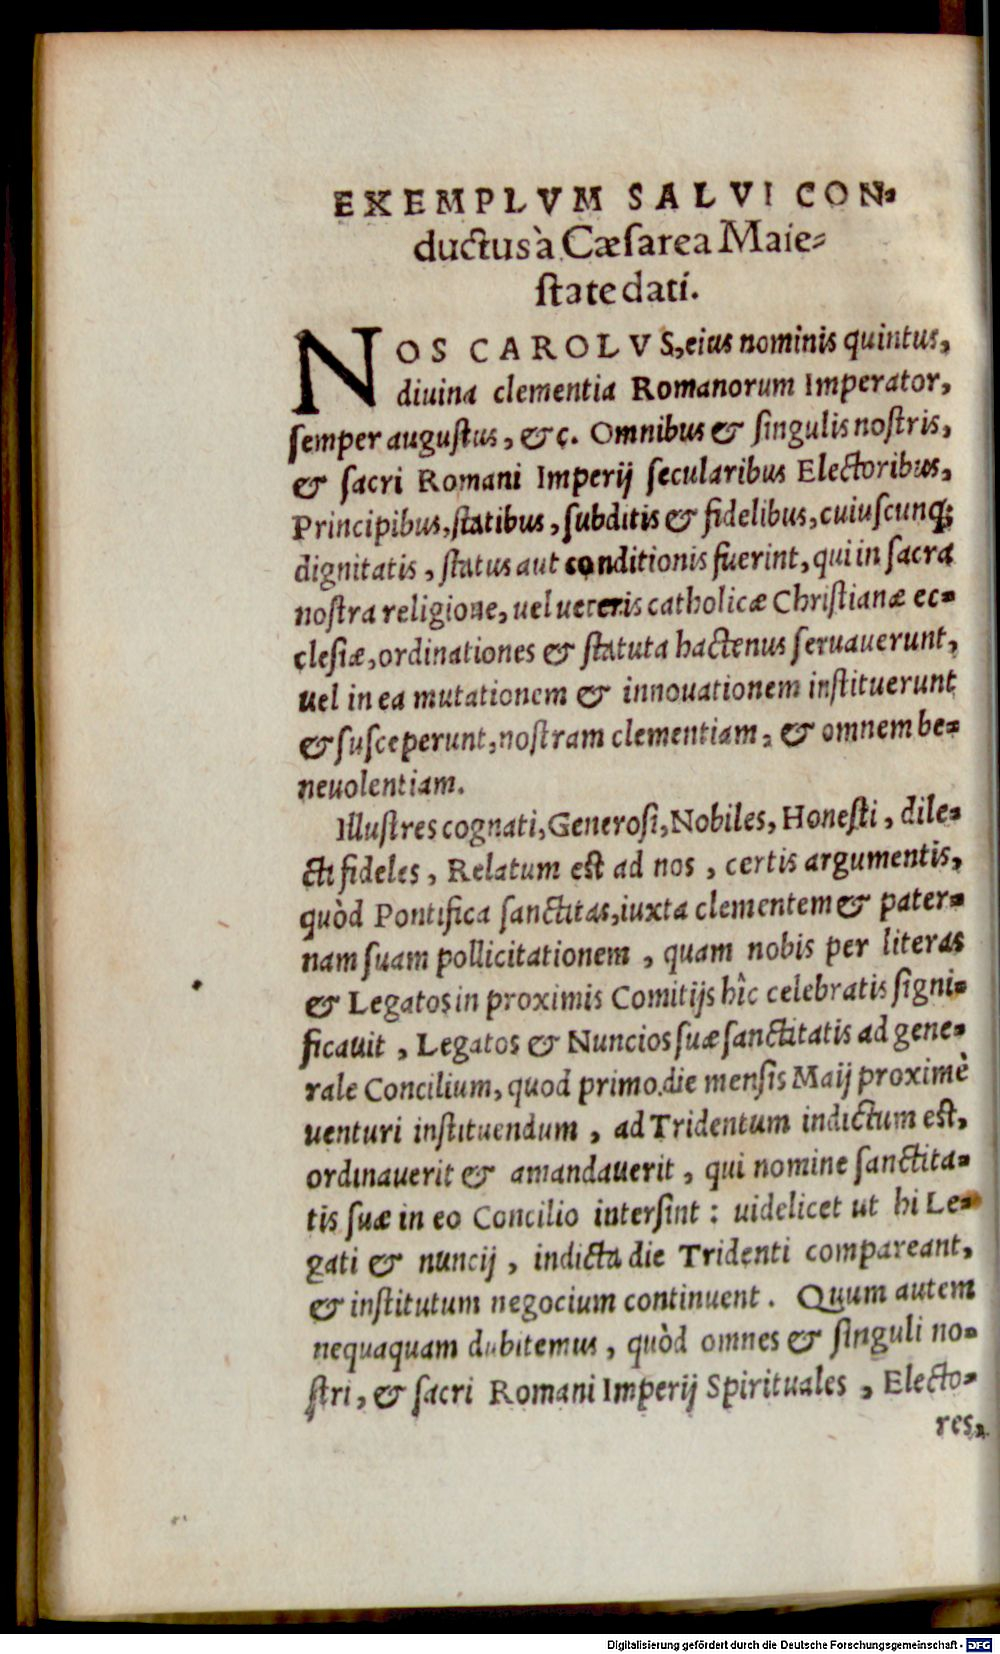 EXEMPLVM SALVI CON-
ductus à Cæsarea Maie-
state dati.
NOS CAROLVS, eius nominis quintus,
diuina clementia Romanorum Imperator,
semper augustus, &c. Omnibus & singulis nostris,
& sacri Romani Imperij secularibus Electoribus,
Principibus, statibus, subditis & fidelibus, cuiuscunq;
dignitatis, status aut conditionis fuerint, qui in sacra
nostra religione, uel ueteris catholicæ Christianæ ec-
clesiæ, ordinationes & statuta hactenus seruauerunt,
uel in ea mutationem & innouationem instituerunt
& susceperunt, nostram clementiam, & omnem be-
neuolentiam.
Illustres cognati, Generosi, Nobiles, Honesti, dile-
cti fideles, Relatum est ad nos, certis argumentis,
quòd Pontifica sanctitas, iuxta clementem & pater-
nam suam pollicitationem, quam nobis per literas
& Legatos in proximis Comitijs hîc celebratis signi-
ficauit, Legatos & Nuncios suæ sanctitatis ad gene-
rale Concilium, quod primo die mensis Maij proximè
uenturi instituendum, ad Tridentum indictum est,
ordinauerit & amandauerit, qui nomine sanctita-
tis suæ in eo Concilio intersint: uidelicet ut hi Le-
gati & nuncij, indicta die Tridenti compareant,
& institutum negocium continuent. Quum autem
nequaquam dubitemus, quòd omnes & singuli no-
stri, & sacri Romani Imperij Spirituales, Electo-
res,
Digitalisierung gefördert durch die Deutsche Forschungsgemeinschaft - DFG